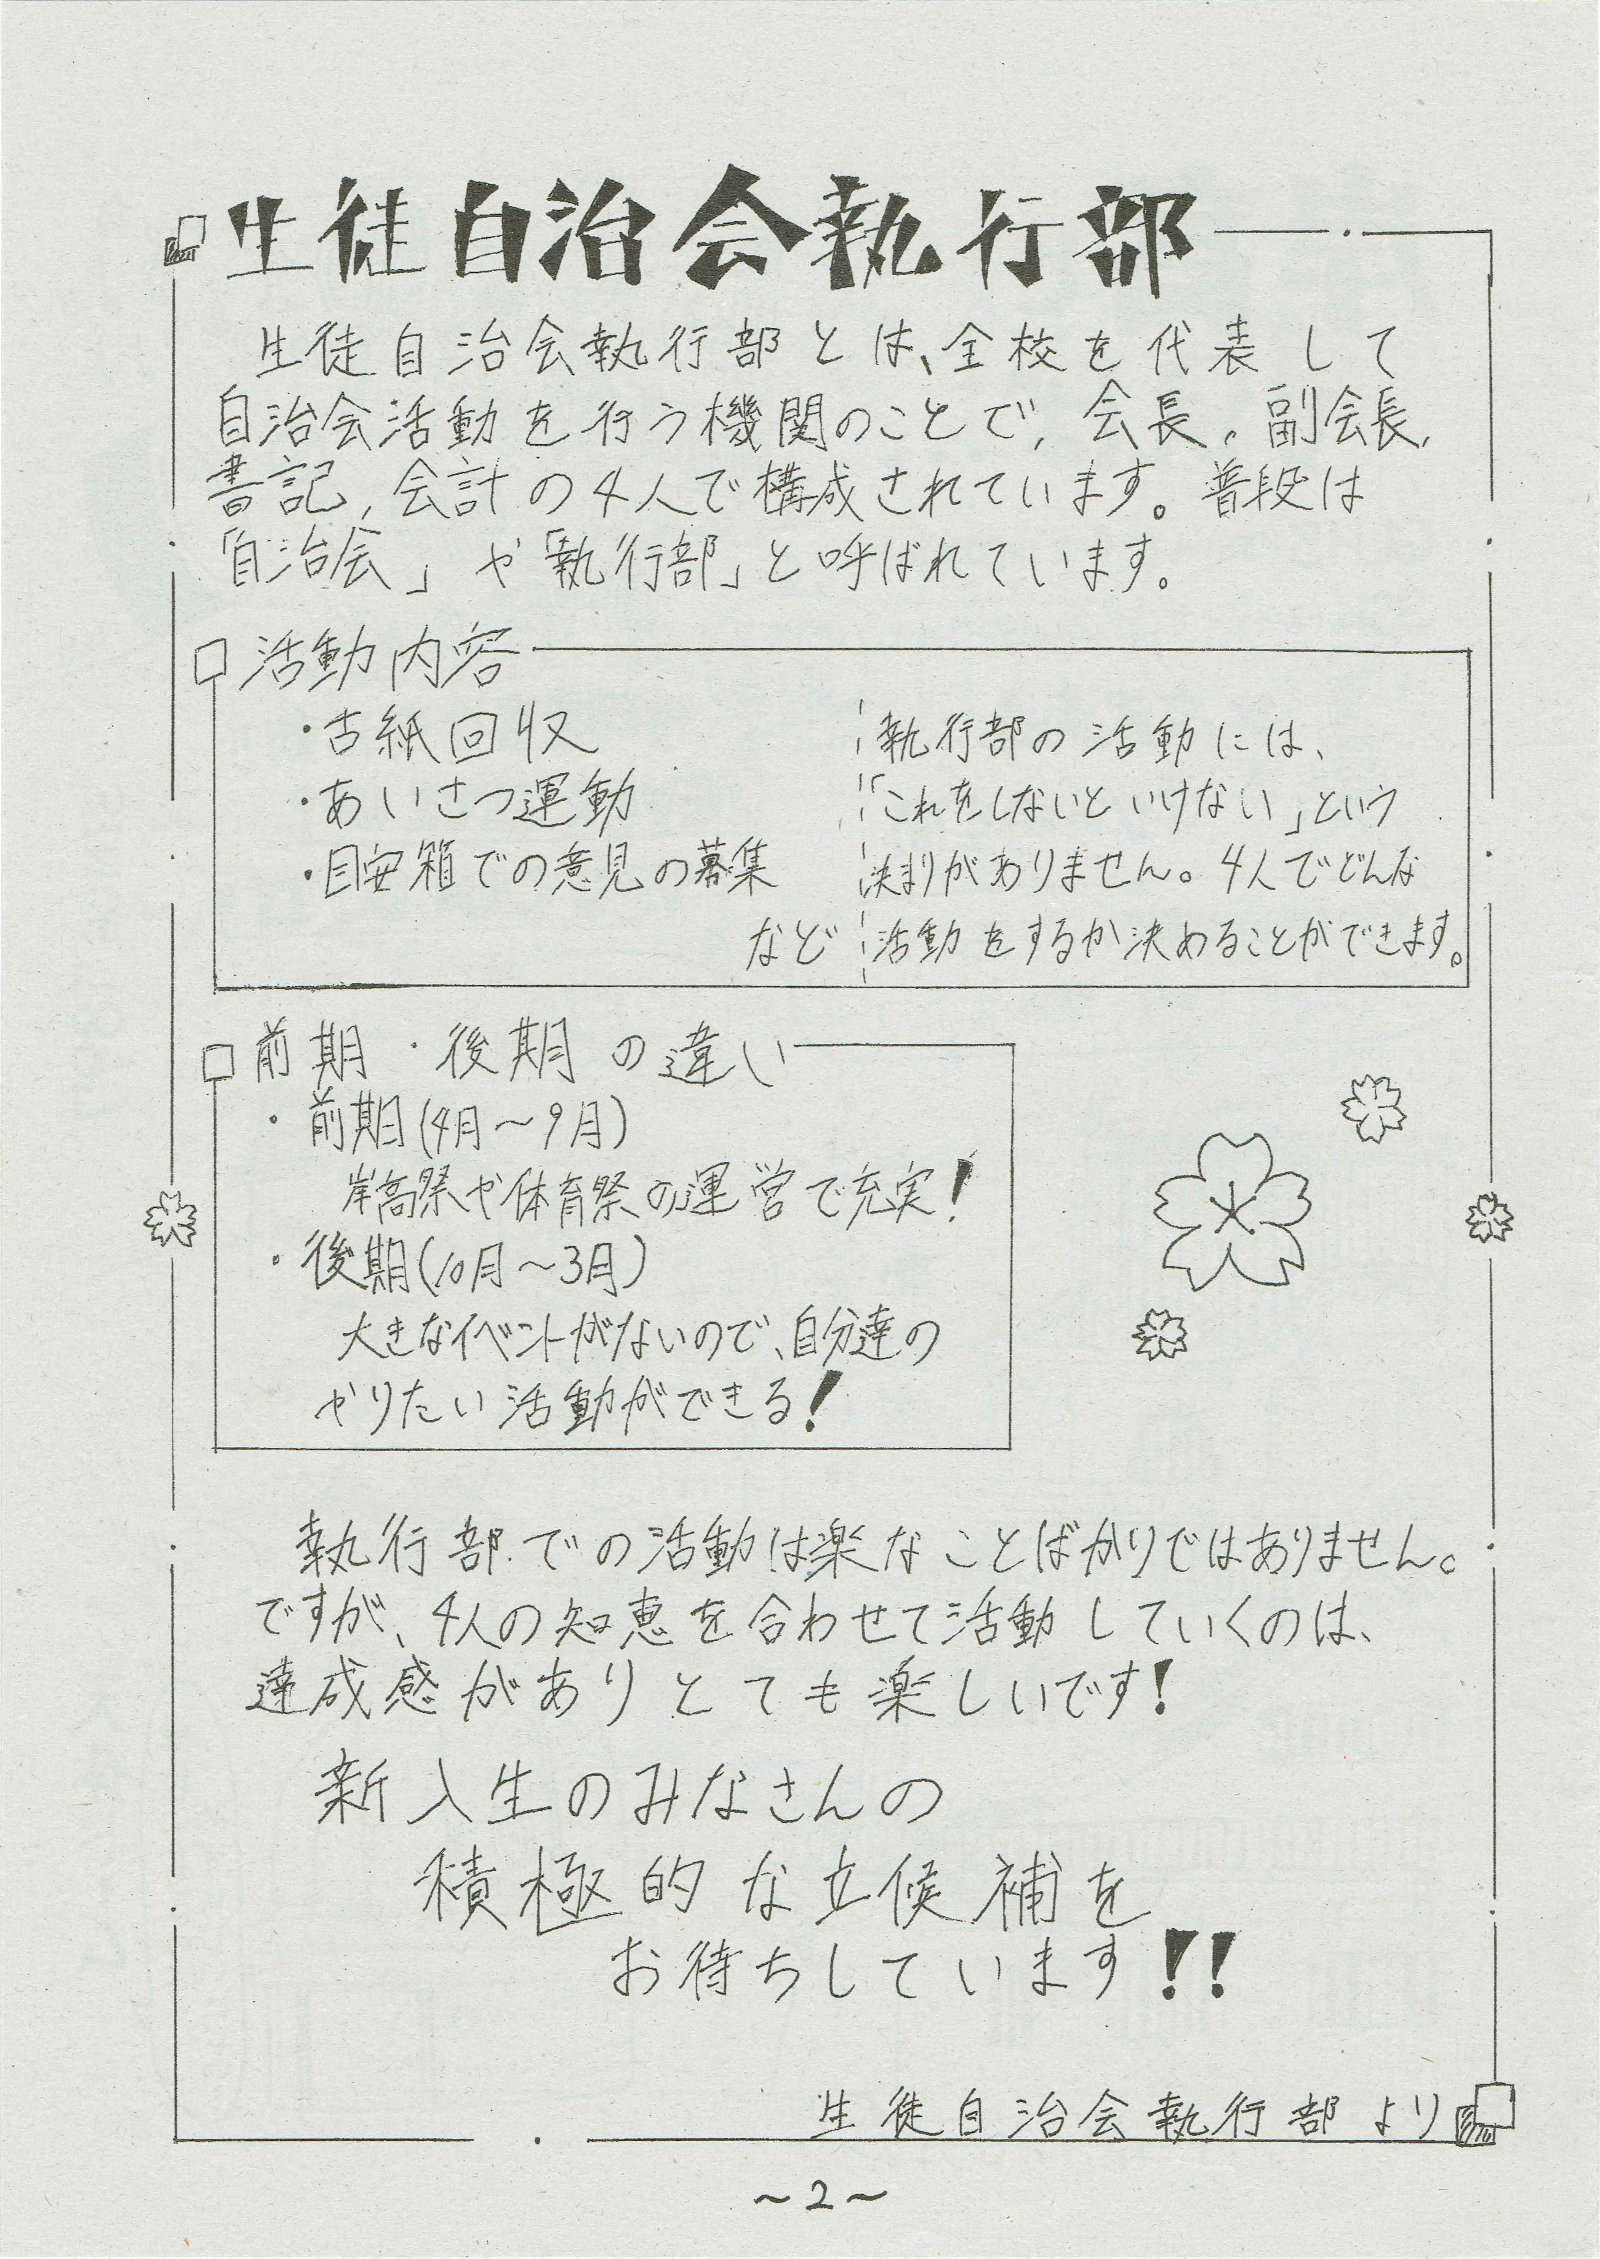 生徒自治会執行部
生徒自治会執行部とは、全校を代表して
自治会活動を行う機関のことで、会長、副会長、
書記、会計の4人で構成されています。普段は
「自治会」や「執行部」と呼ばれています。
活動内容
・古紙回収
・あいさつ運動
・目安箱での意見の募集
など
執行部の活動には、
「これをしないといけない」という
決まりがありません。4人でどんな
活動をするか決めることができます。
前期・後期の違い
・前期(4月〜9月)
岸高祭や体育祭の運営で充実!
・後期(10月〜3月)
大きなイベントがないので、自分達の
やりたい活動ができる!
執行部での活動は楽なことばかりではありません。
ですが、4人の知恵を合わせて活動していくのは、
達成感がありとても楽しいです!
新入生のみなさんの
積極的な立候補を
お待ちしています!!
生徒自治会執行部より
〜2〜